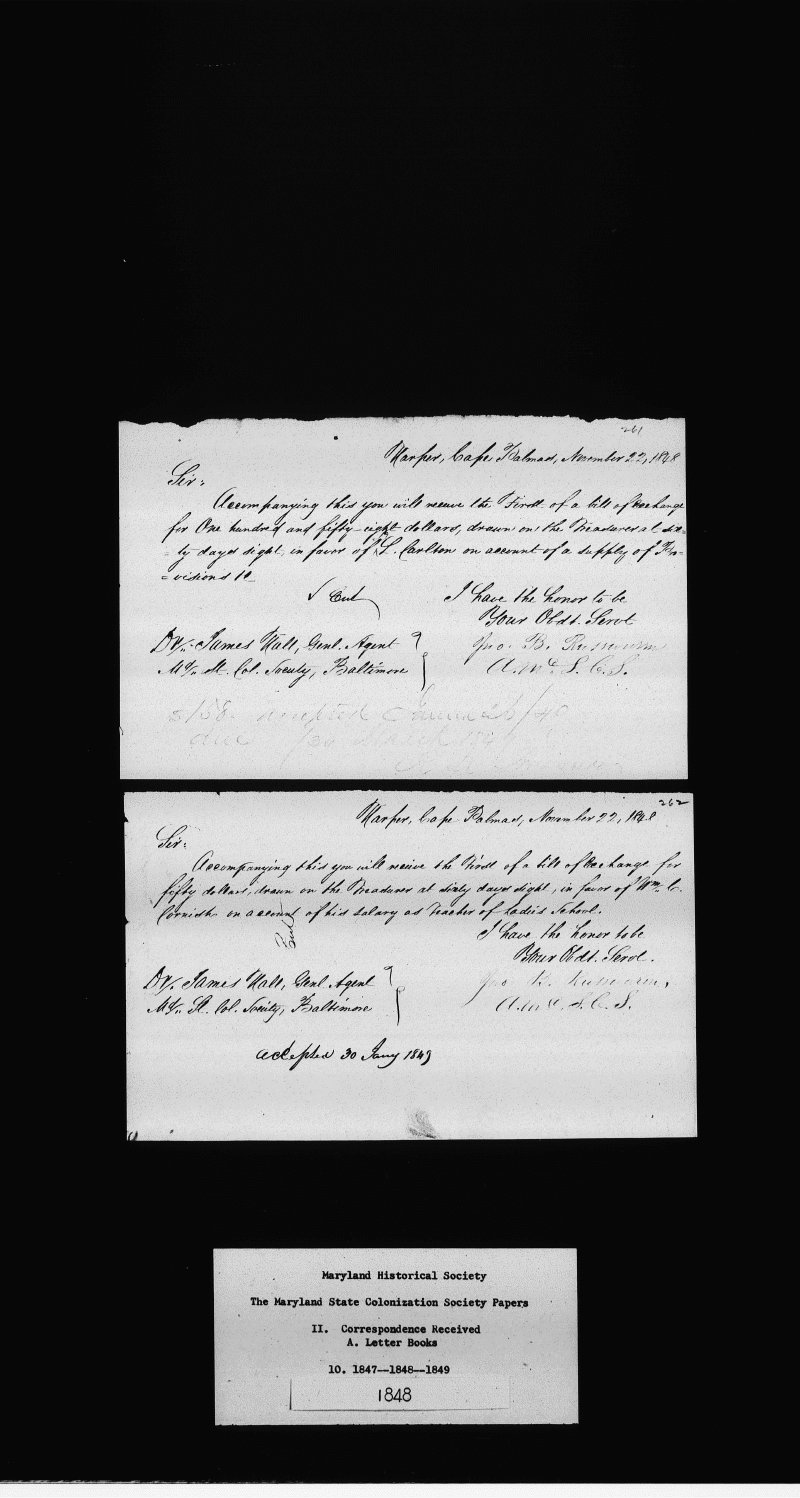 261
Harper, Cape Palmas, November 22, 1848
Sir:
Accompanying this you will receive the First of a bill of Exchange
for One hundred and fifty-eight dollars, drawn on the Treasurer at six-
-ty days sight, in favor of L. Carlton on account of a supply of Pro-
-visions &c
I have the honor to be
Your Obdt. Servt
Dr. James Hall, Genl. Agent
Jno. B. Russwurm
Md. St. Col. Society, Baltimore
A. Md. S. C. S.
$158. accepted
due March 1849
262
Harper, Cape Palmas, November 22, 1848
Sir:
Accompanying this you will receive the First of a bill of Exchange for
fifty dollars, drawn on the Treasurer at sixty days sight, in favor of Wm. C.
Cornish on account of his salary as Teacher of Ladies School.
I have the honor to be
Your Obdt. Servt.
Dr. James Hall, Genl Agent
Jno B. Russwurm,
Md. St. Col. Society, Baltimore
A. Md. S. C. S.
accepted 30 Jany 1849
Maryland Historical Society
The Maryland State Colonization Society Papers
II. Correspondence Received
A. Letter Books
10. 1847--1848--1849
1848